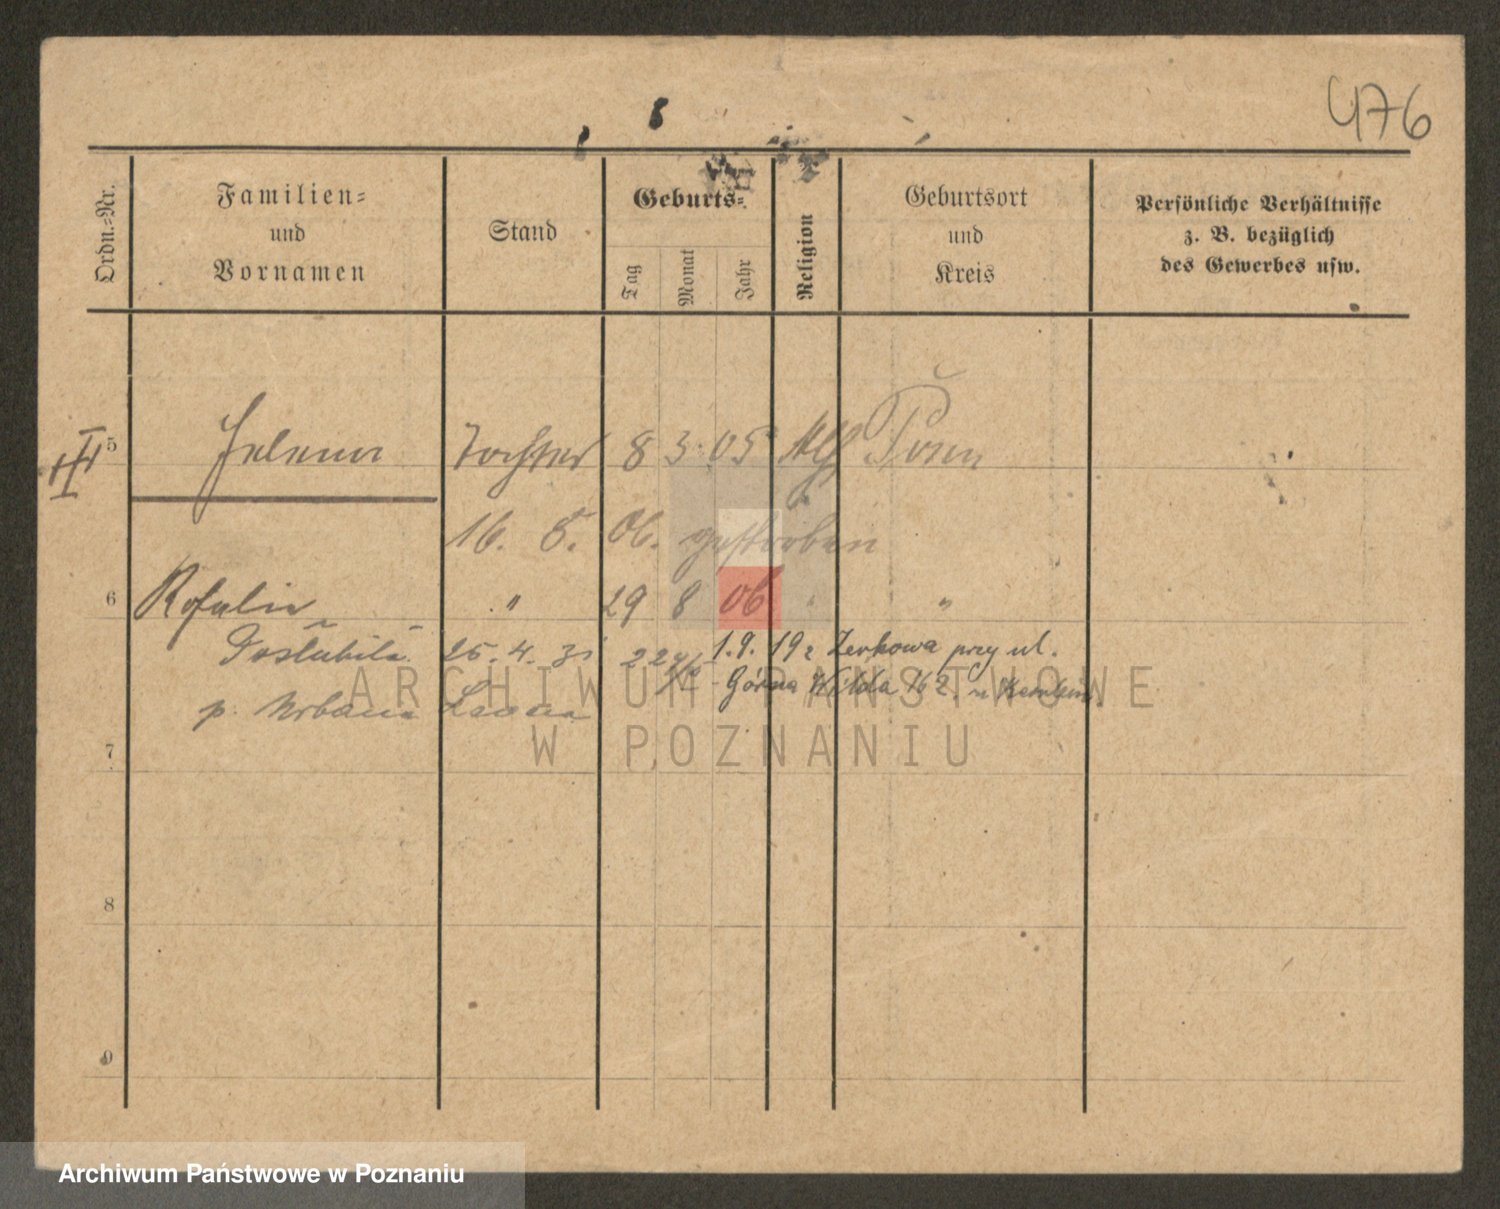 476
Ordn.-Nr.
Familien-
und
Vornamen
Stand
Geburts-
Tag
Monat
Jahr
Religion
Geburtsort
und
Kreis
Persönliche Verhältnisse
z. B. bezüglich
des Gewerbes usw.
5 Helena Tochter 8 3. 05 Posen
16. 5. 06. gestorben
6 Rosalie " 29 8 06 " "
Poślubiła 25. 4. 31
1. 9. 19 z Żerkowa przy ul.
Górna Wilda 162.
p. Urbana
7
8
9
ARCHIWUM PAŃSTWOWE
W POZNANIU
Archiwum Państwowe w Poznaniu